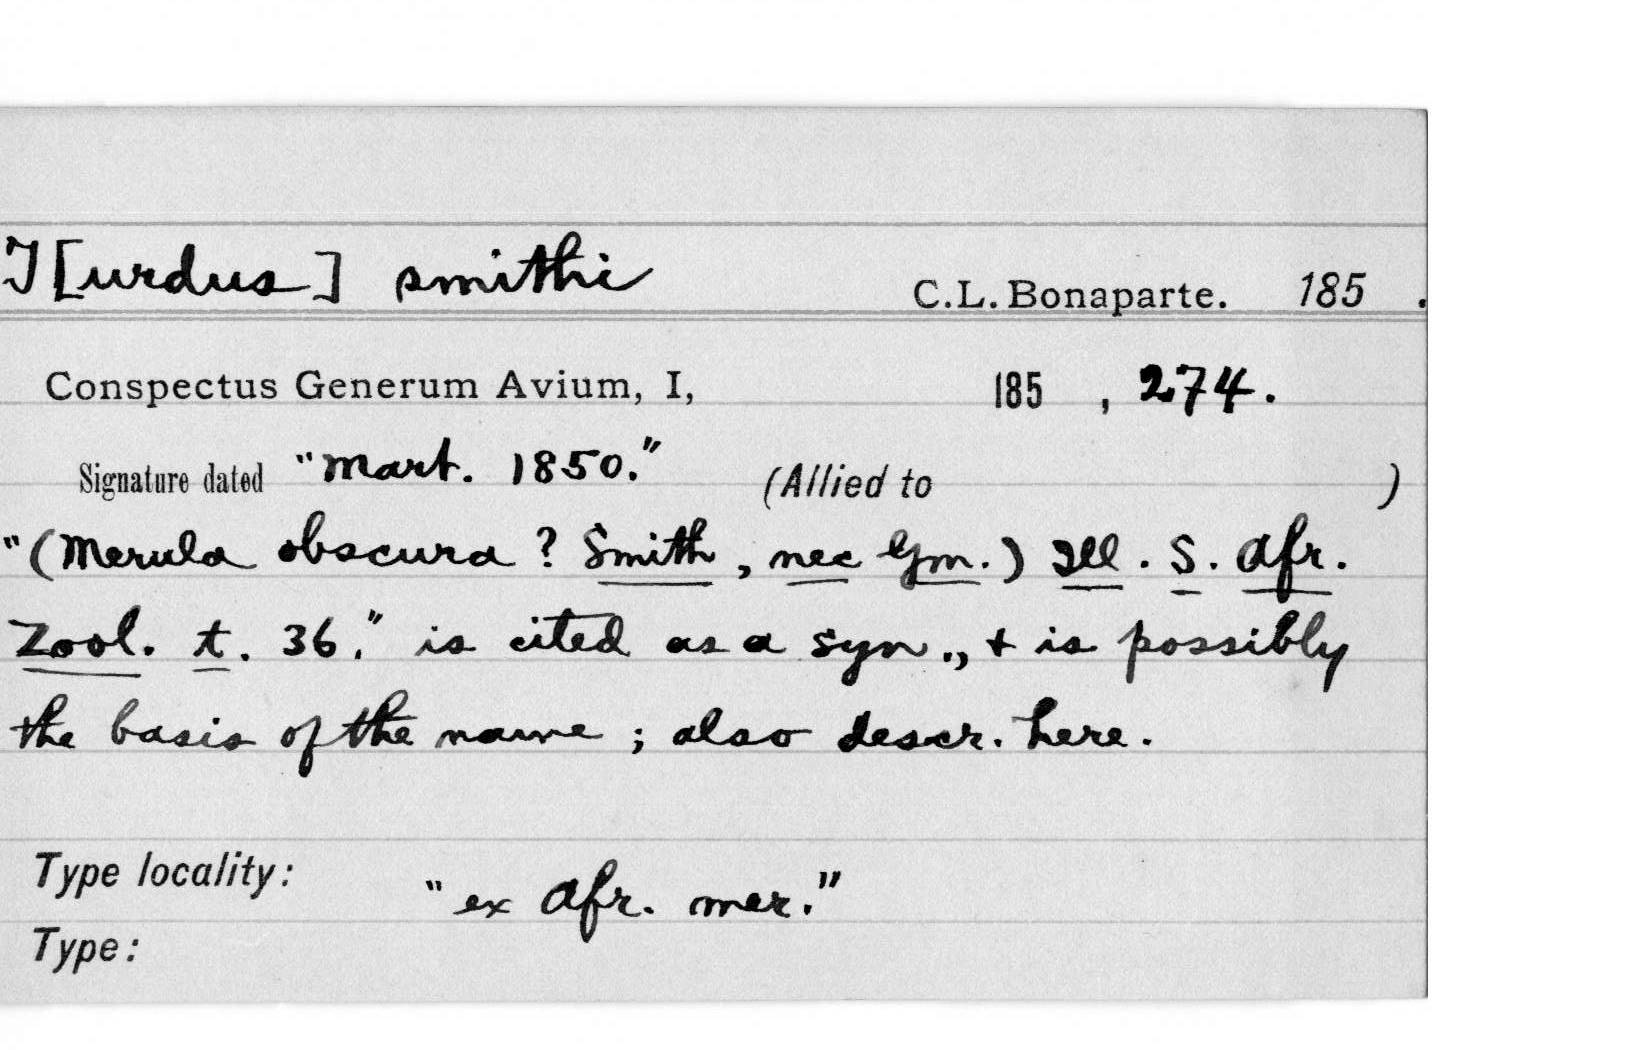 T[urdus] smithi C.L. Bonaparte. 185 .
Conspectus Generum Avium, I, 185 , 274.
Signature dated "Mart. 1850." (Allied to )
"(Merula obscura ? Smith, nec Gm.) Ill. S. Afr.
Zool. t. 36." is cited as a syn., + is possibly
the basis of the name ; also descr. here.
Type locality: "ex Afr. mer."
Type: